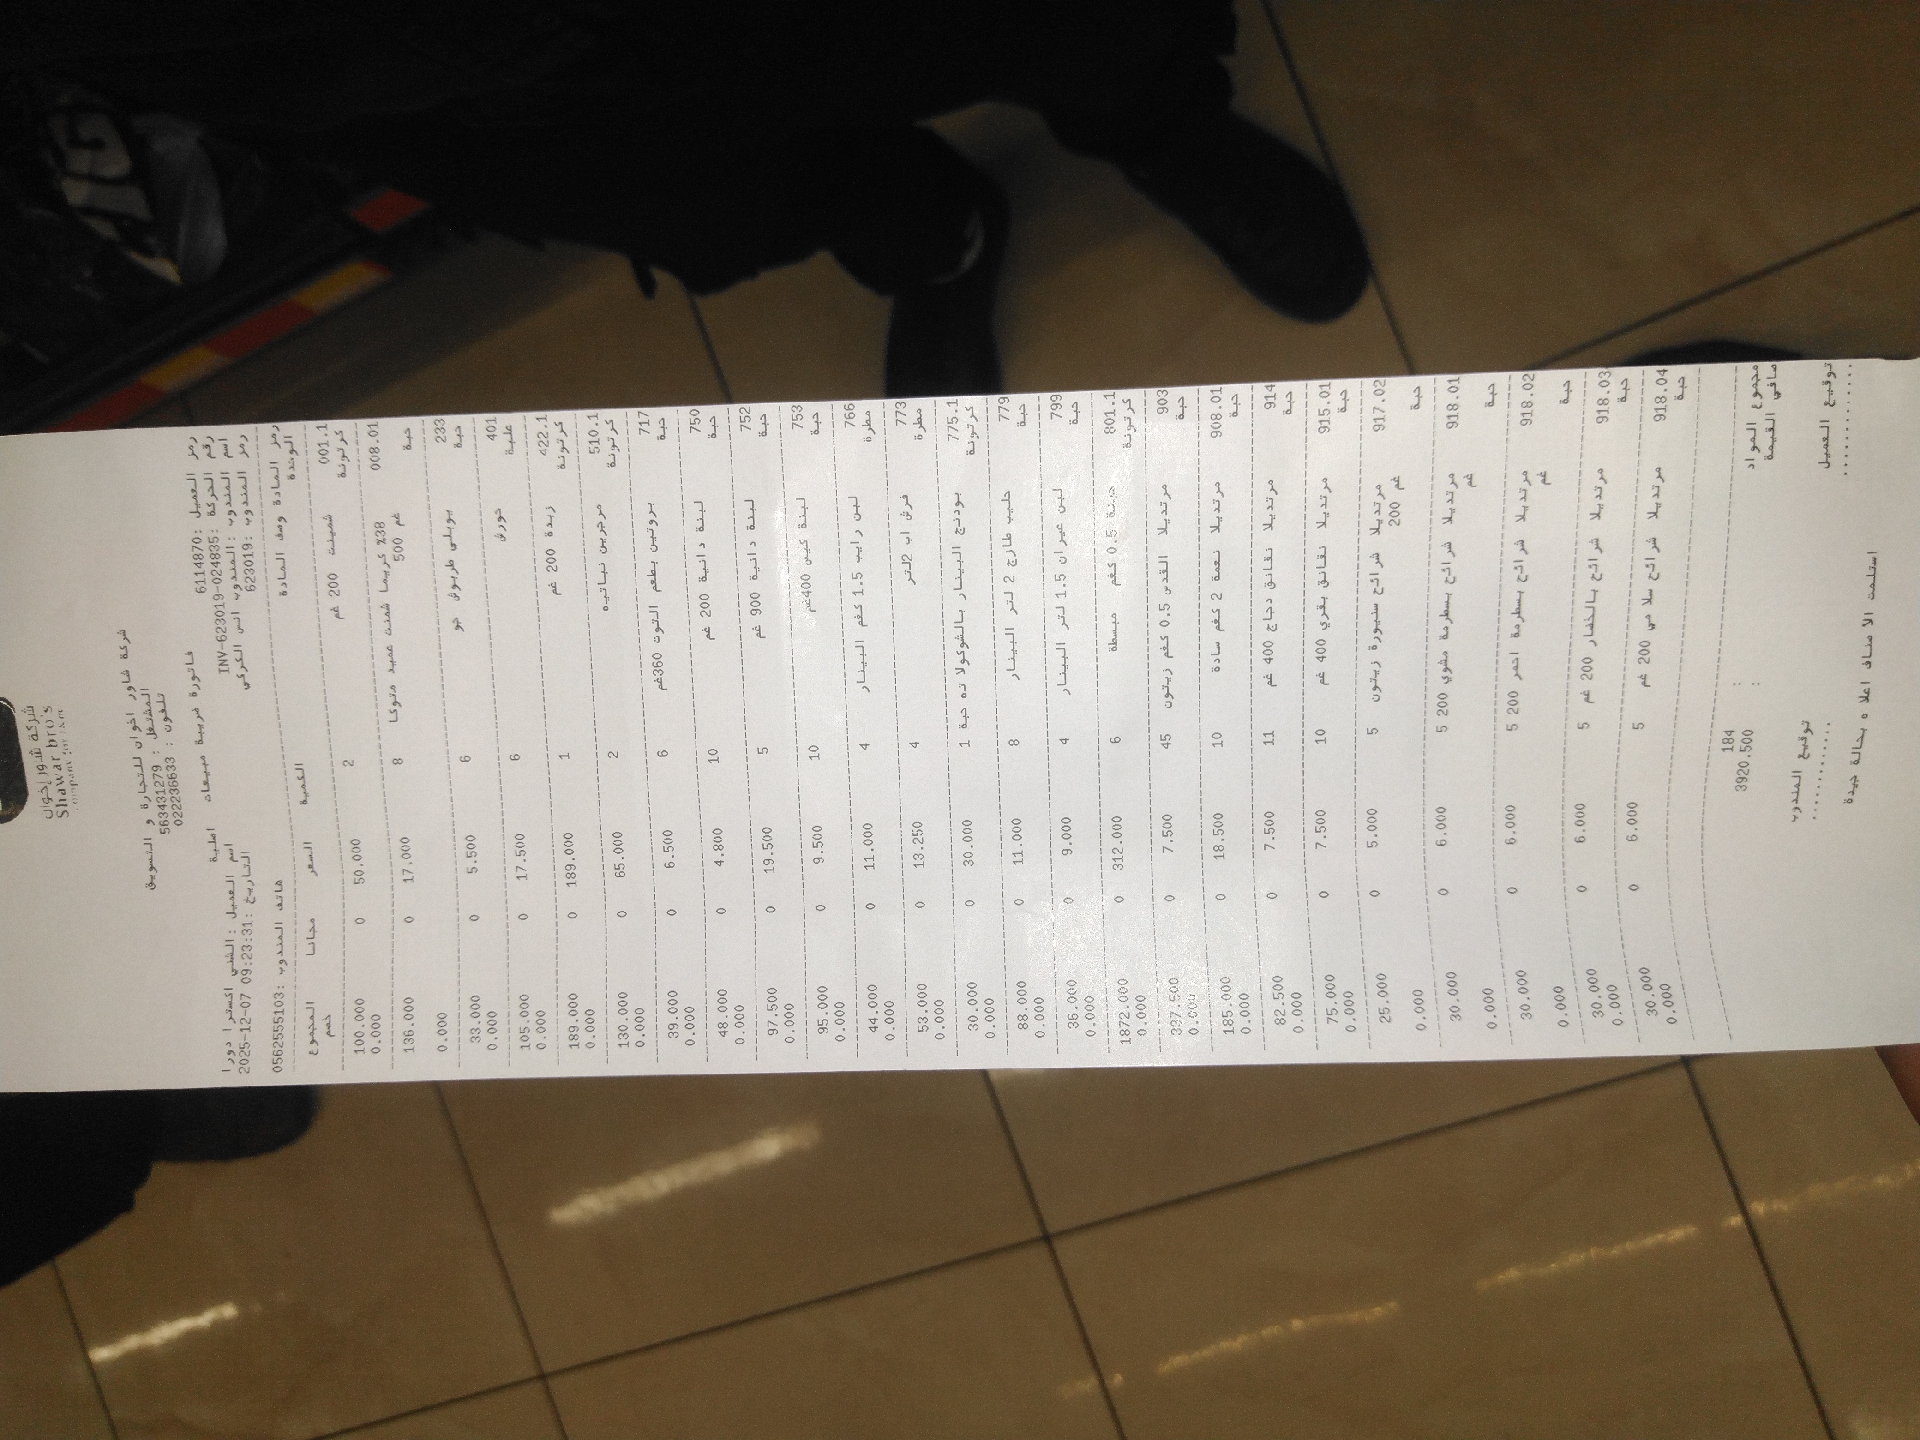 شركة شاور إخوان
Shawar bro's
شركة شاور اخوان للتجارة و التسويق
المشتغل : 563431279
تلفون : 022236633
فاتورة ضريبية مبيعات اصلية
رمز العميل :6114870 اسم العميل :الشني اكسترا دورا
رقم الحركة :INV-623019-024835 التاريخ :2025-12-07 09:23:31
اسم المندوب :المندوب انس الكركي
رمز المندوب :623019 هاتف المندوب :0562555103
رمز المادة وصف المادة الكمية السعر مجانا المجموع
الوحدة خصم
001.1 شمينت 200 غم 2 50.000 0 100.000
كرتونة 0.000
008.01 38% كريما شمنت عميد متوكا 8 17.000 0 136.000
حبة 500 غم 0.000
233 بوبلي طربوش جو 6 5.500 0 33.000
حبة 0.000
401 جورق 6 17.500 0 105.000
علبة 0.000
422.1 زبدة 200 غم 1 189.000 0 189.000
كرتونة 0.000
510.1 مرجرين نباتيه 2 65.000 0 130.000
كرتونة 0.000
717 بروتين بطعم التوت 360غم 6 6.500 0 39.000
حبة 0.000
750 لبنة دانية 200 غم 10 4.800 0 48.000
حبة 0.000
752 لبنة دانية 900 غم 5 19.500 0 97.500
حبة 0.000
753 لبنة كيس 400غم 10 9.500 0 95.000
حبة 0.000
766 لبن رايب 1.5 كغم البينار 4 11.000 0 44.000
مطرة 0.000
773 فرش اب 2لتر 4 13.250 0 53.000
مطرة 0.000
775.1 بودنج البينار بالشوكولا ته حبة 1 30.000 0 30.000
كرتونة 0.000
779 حليب طازج 2 لتر البينار 8 11.000 0 88.000
حبة 0.000
799 لبن عيران 1.5 لتر البينار 4 9.000 0 36.000
حبة 0.000
801.1 جبنة 0.5 كغم مبسطة 6 312.000 0 1872.000
كرتونة 0.000
903 مرتديلا القدس 0.5 كغم زيتون 45 7.500 0 337.500
حبة 0.000
908.01 مرتديلا نعمة 2 كغم سادة 10 18.500 0 185.000
حبة 0.000
914 مرتديلا نقانق دجاج 400 غم 11 7.500 0 82.500
حبة 0.000
915.01 مرتديلا نقانق بقري 400 غم 10 7.500 0 75.000
حبة 0.000
917.02 مرتديلا شرائح سنيورة زيتون 5 5.000 0 25.000
200 غم
حبة 0.000
918.01 مرتديلا شرائح بسطرمة مشوي 200 5 6.000 0 30.000
غم
حبة 0.000
918.02 مرتديلا شرائح بسطرمة احمر 200 5 6.000 0 30.000
غم
حبة 0.000
918.03 مرتديلا شرائح بالخضار 200 غم 5 6.000 0 30.000
حبة 0.000
918.04 مرتديلا شرائح سلا مي 200 غم 5 6.000 0 30.000
حبة 0.000
مجموع المواد : 184
صافي القيمة : 3920.500
توقيع العميل توقيع المندوب
............ ............
استلمت الا صناف اعلا ه بحالة جيدة